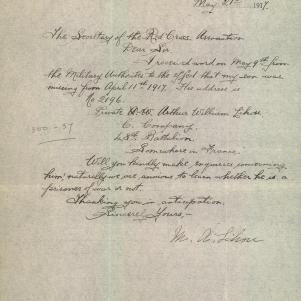 May 21st 1917.
The Secretary of the Red Cross Association
Dear Sir
I received word on May 9th from
the Military Authorities to the effect that my son was
missing from April 11th 1917. His address is
No 2196.
Private Arthur William
C. Company.
48th Battalion.
Somewhere in France.
Will you kindly make enquiries concerning
him, naturally we are anxious to learn whether he is a
prisoner of war or not.
Thanking you in anticipation.
Sincerely Yours,-
M. A.